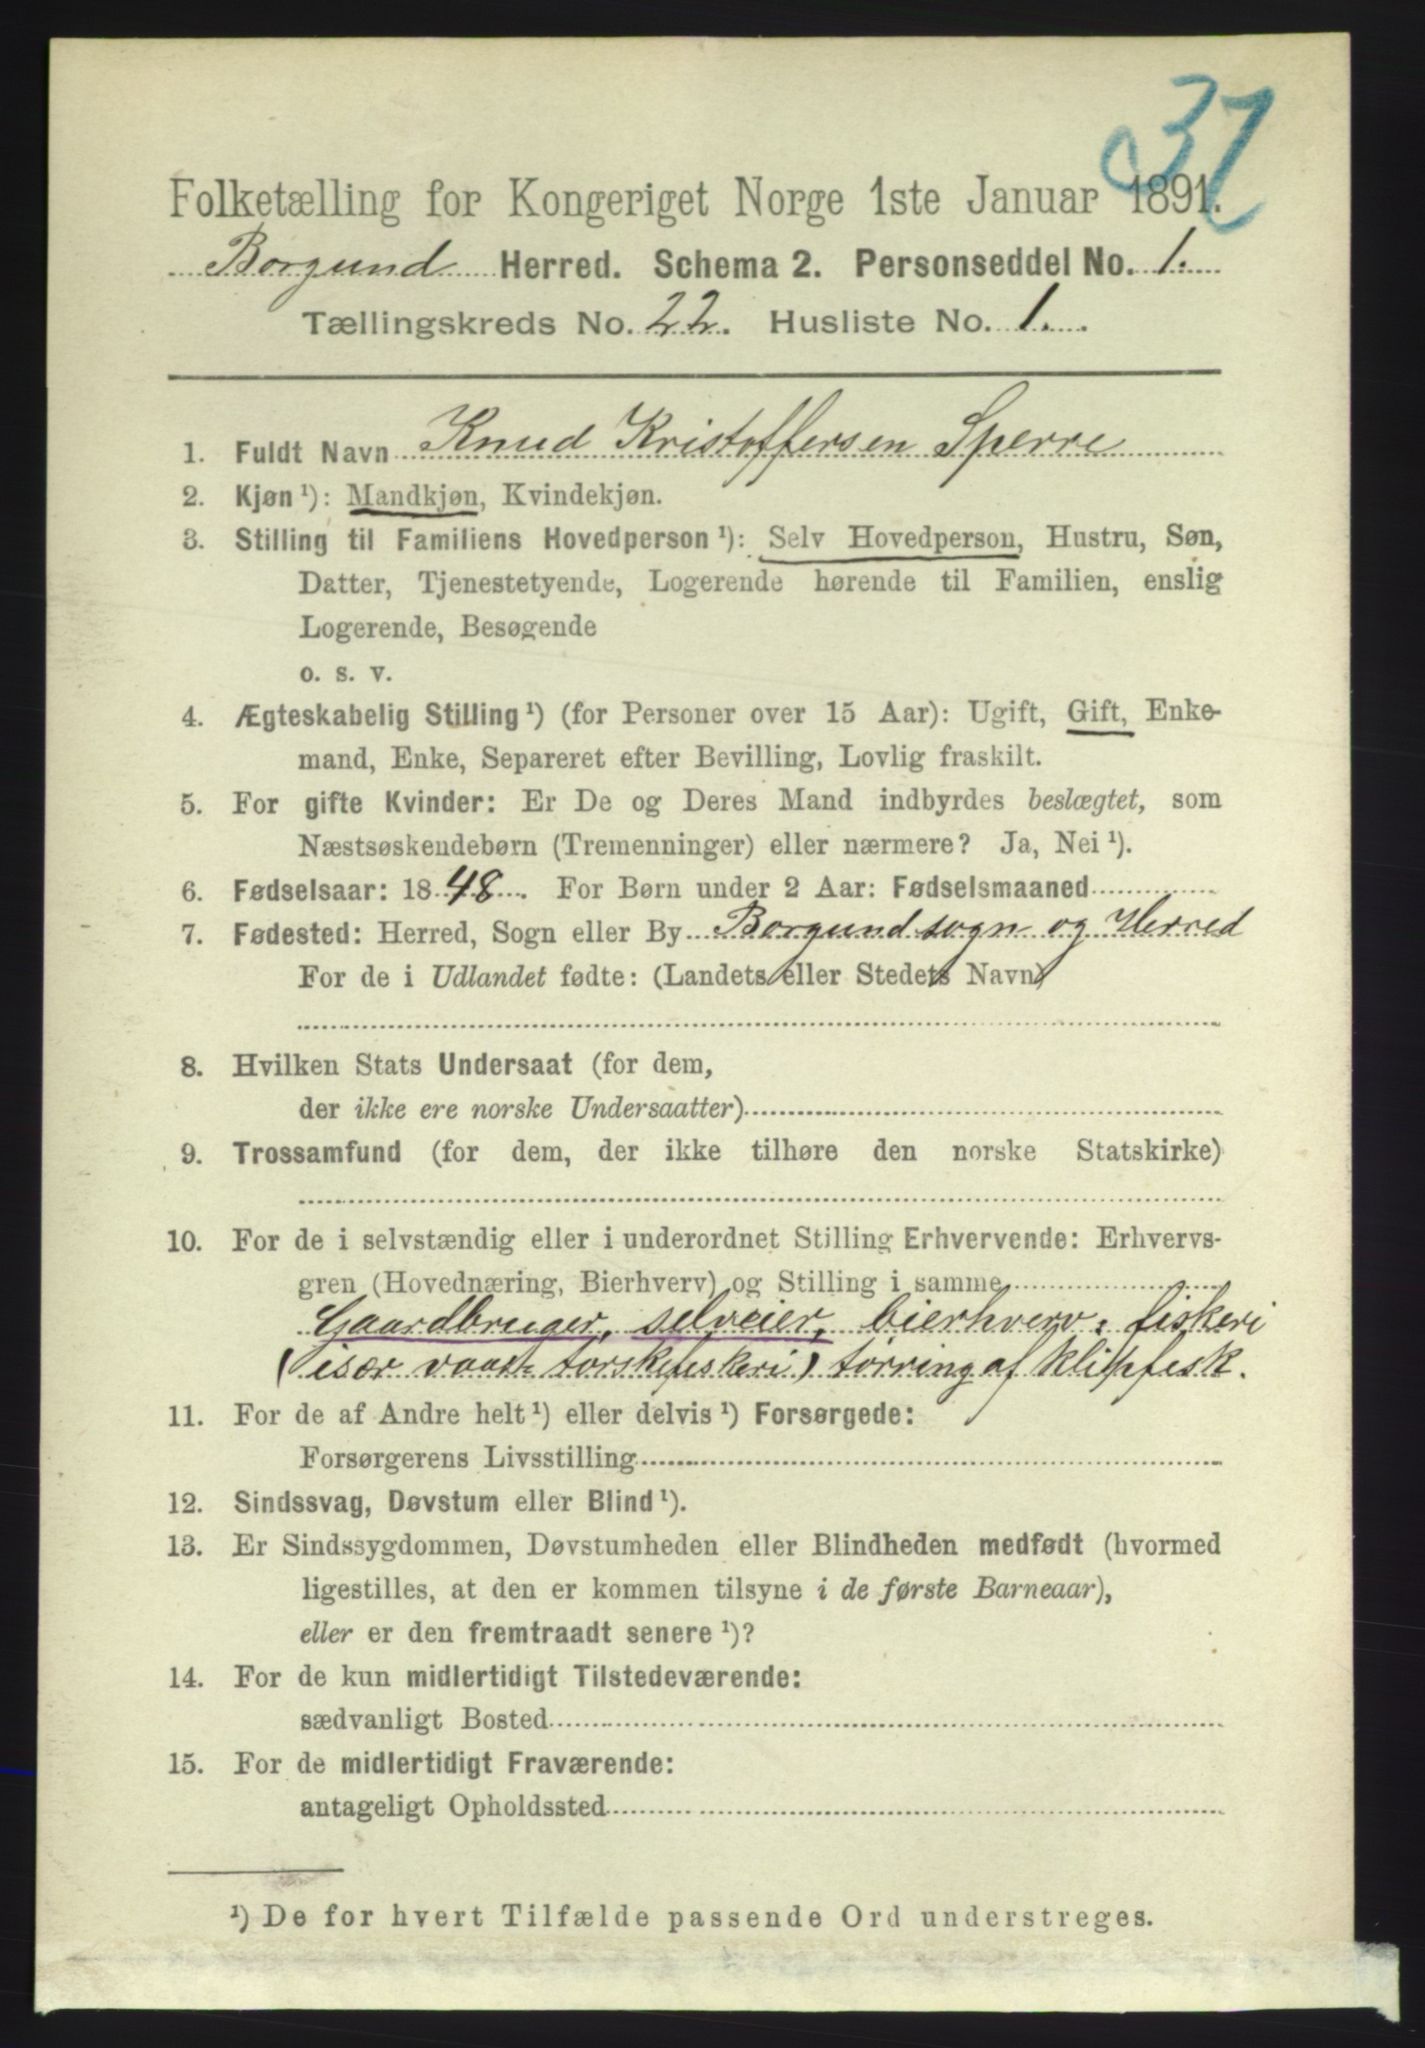 37
Folketælling for Kongeriget Norge 1ste Januar 1891.
Borgund Herred. Schema 2. Personseddel No. 1.
Tællingskreds No. 22. Husliste No. 1.
1. Fuldt Navn Knud Kristoffersen Sperre
2. Kjøn ¹): Mandkjøn, Kvindekjøn.
3. Stilling til Familiens Hovedperson ¹): Selv Hovedperson, Hustru, Søn,
Datter, Tjenestetyende, Logerende hørende til Familien, enslig
Logerende, Besøgende
o. s. v.
4. Ægteskabelig Stilling ¹) (for Personer over 15 Aar): Ugift, Gift, Enke-
mand, Enke, Separeret efter Bevilling, Lovlig fraskilt.
5. For gifte Kvinder: Er De og Deres Mand indbyrdes beslægtet, som
Næstsøskendebørn (Tremenninger) eller nærmere? Ja, Nei ¹).
6. Fødselsaar: 1848. For Børn under 2 Aar: Fødselsmaaned
7. Fødested: Herred, Sogn eller By Borgund sogn og Herred
For de i Udlandet fødte: (Landets eller Stedets Navn)
8. Hvilken Stats Undersaat (for dem,
der ikke ere norske Undersaatter)
9. Trossamfund (for dem, der ikke tilhøre den norske Statskirke)
10. For de i selvstændig eller i underordnet Stilling Erhvervende: Erhvervs-
gren (Hovednæring, Bierhverv) og Stilling i samme
Gaardbruger, selveier, bierhverv: fiskeri
(især vaar- torskefiskeri) tørring af klipfisk.
11. For de af Andre helt ¹) eller delvis ¹) Forsørgede:
Forsørgerens Livsstilling
12. Sindssvag, Døvstum eller Blind ¹).
13. Er Sindssygdommen, Døvstumheden eller Blindheden medfødt (hvormed
ligestilles, at den er kommen tilsyne i de første Barneaar),
eller er den fremtraadt senere ¹)?
14. For de kun midlertidigt Tilstedeværende:
sædvanligt Bosted
15. For de midlertidigt Fraværende:
antageligt Opholdssted
¹) De for hvert Tilfælde passende Ord understreges.